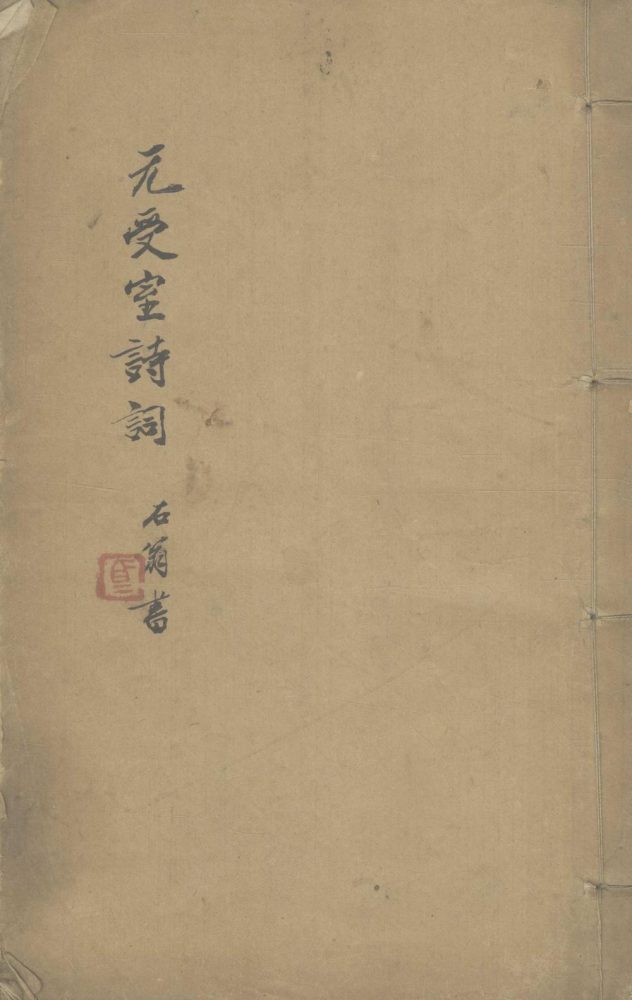 无受室詩詞
石翁書